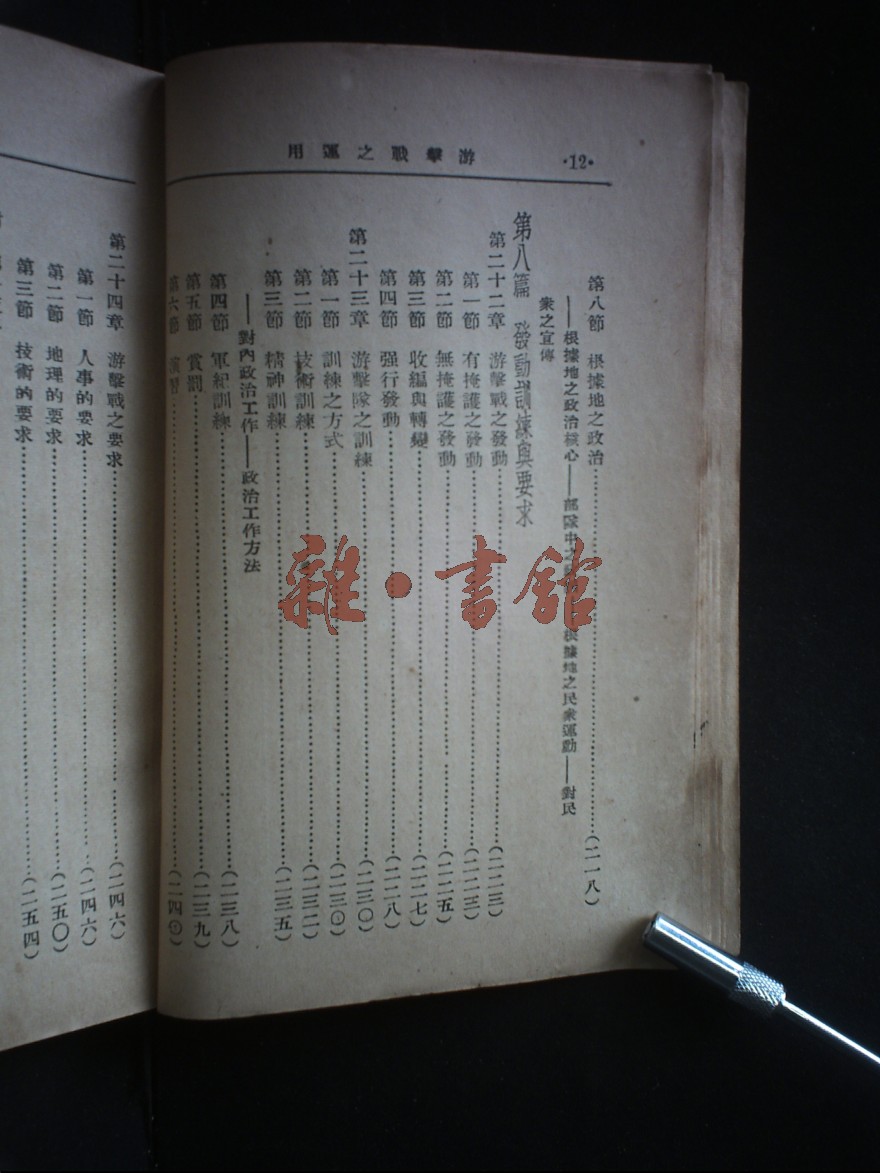 游擊戰之運用
·12·
第八節 根據地之政治……(二一八)
——根據地之政治核心——部隊中之 根據地之民衆運動——對民
衆之宣傳
第八篇 發動訓練與要求
第二十二章 游擊戰之發動……(二二三)
第一節 有掩護之發動……(二二三)
第二節 無掩護之發動……(二二五)
第三節 收編與轉變……(二二七)
第四節 强行發動……(二二八)
第二十三章 游擊隊之訓練……(二三〇)
第一節 訓練之方式……(二三〇)
第二節 技術訓練……(二三二)
第三節 精神訓練……(二三五)
——對內政治工作——政治工作方法
第四節 軍紀訓練……(二三八)
第五節 賞罰……(二三九)
第六節 演習……(二四〇)
第二十四章 游擊戰之要求……(二四六)
第一節 人事的要求……(二四六)
第二節 地理的要求……(二五〇)
第三節 技術的要求……(二五四)
雜·書館